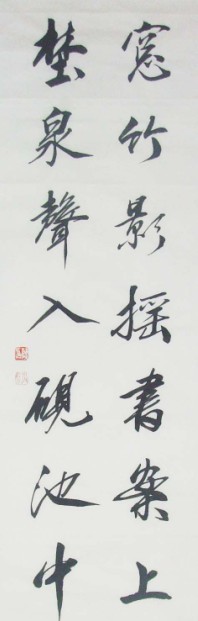 窻竹影搖書案上
埜泉聲入硯池中